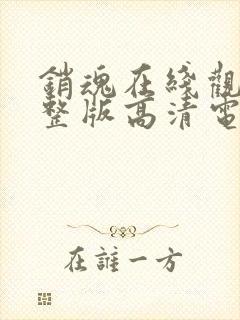 銷魂在綫觀
整版高清電
在誰一方